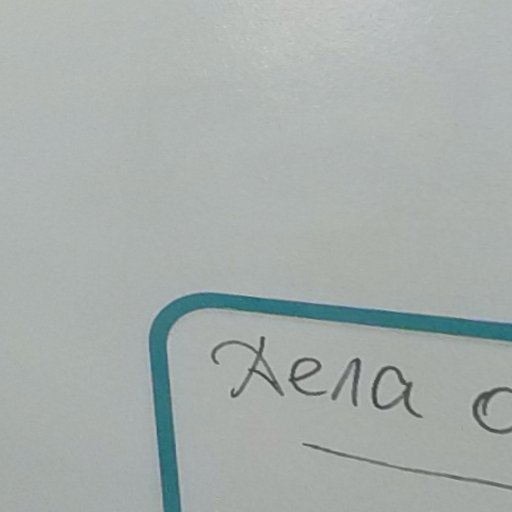 Дела